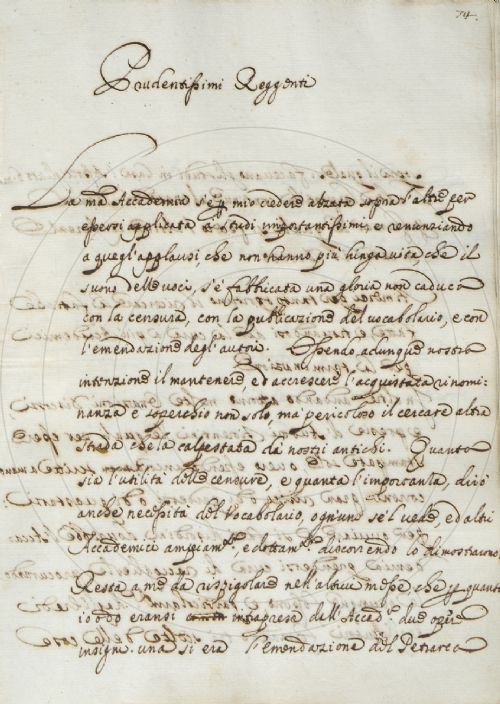 74.
Prudentissimi Reggenti
La ñra Accademia s'è p mio credere alzata sopra l'altre per
essersi applicata a studi importantissimi, e renunziando
a quegl'applausi, che non hanno più lunga vita che il
suono delle voci, s'è fabbricata una gloria non caduca
con la censura, con la publicazione del vocabolario, e con
l'emendazione degl'autori. Essendo adunque nostra
intenzione il mantenere, ed accrescere l'acquistata rinomi-
nanza è soperchio non solo, ma pericoloso il cercare altra
strada che la calpestata da nostri antichi. Quanta
sia l'utilità delle censure, e quanta l'importanza, dirò
anche necessità del Vocabolario, ognuno se'l vede, ed altri
Accademici ampiam.te, e dottam.te discorrendo lo dimostrarono,
Resta a me da rispigolare nell'altrui messe che p quanto
io odo eransi intraprese dall'Accad.a due opere
insigni una si era l'emendazione del Petrarca